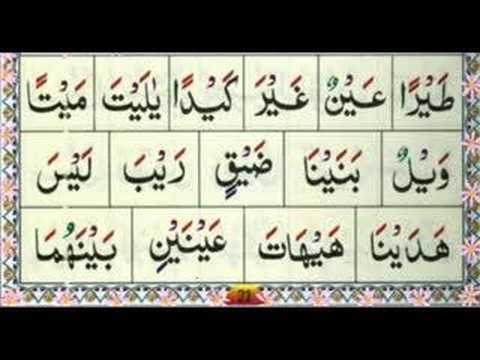 طَيْرًا عَيْنٌ غَيْرَ كَيْدًا يٰلَيْتَ مَيْتًا
وَيْلٌ بَنَيْنَا ضَيْقٍ رَيْبَ لَيْسَ
هَدَيْنَا هَيْهَاتَ عَيْنَيْنِ بَيْنَهُمَا
21